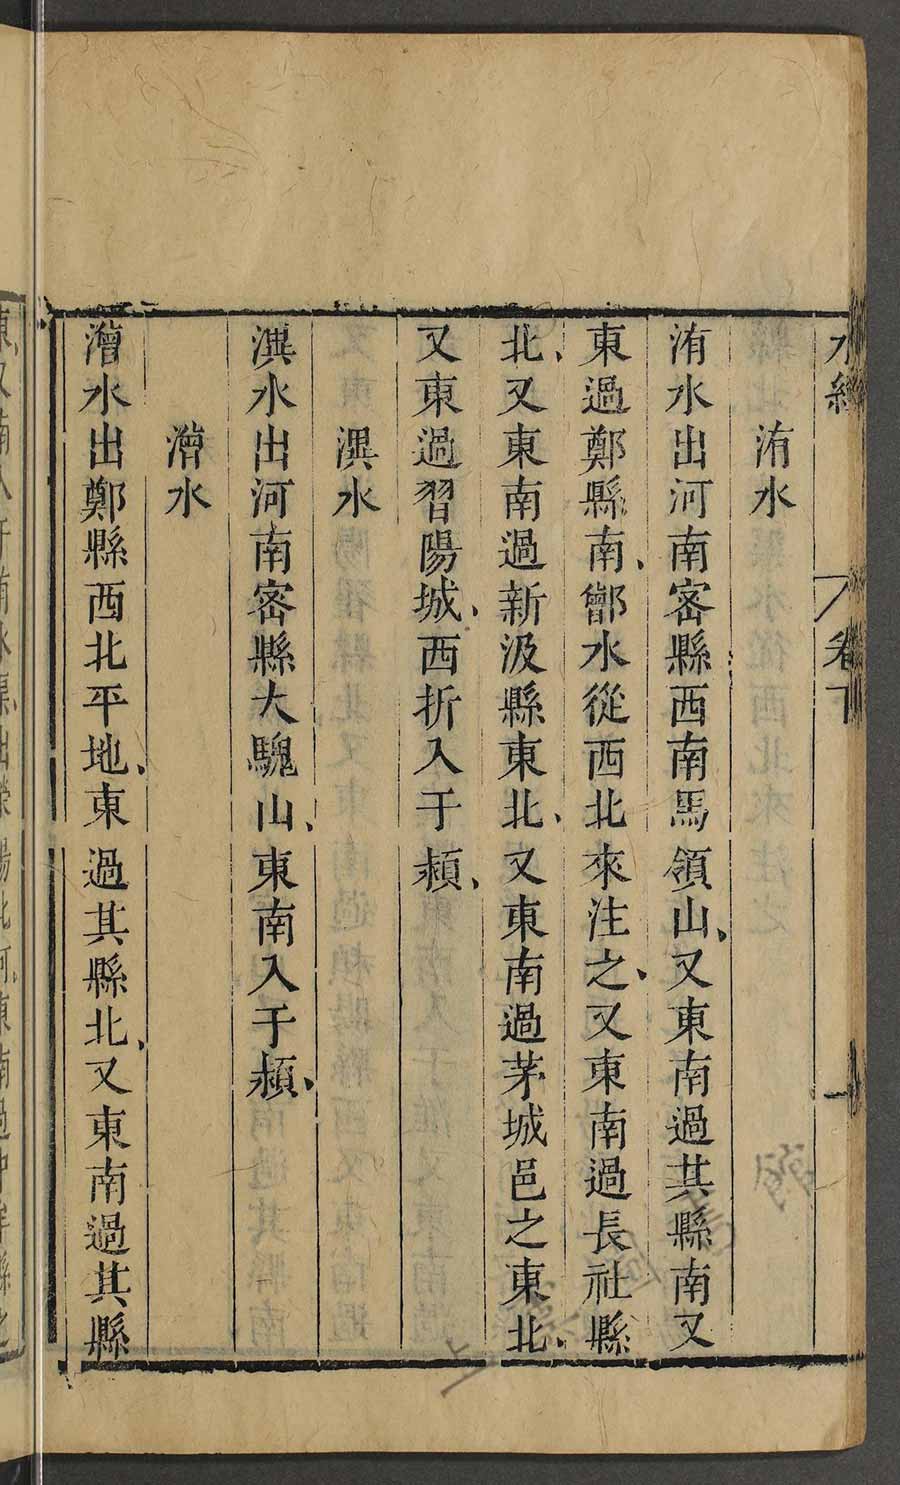 水經 卷下 一
洧水
洧水出河南密縣西南馬領山、又東南過其縣南又
東過鄭縣南、鄶水從西北來注之、又東南過長社縣
北、又東南過新汲縣東北、又東南過茅城邑之東北、
又東過習陽城、西折入于潁、
潩水
潩水出河南密縣大騩山、東南入于潁、
澮水
澮水出鄭縣西北平地、東過其縣北、又東南過其縣